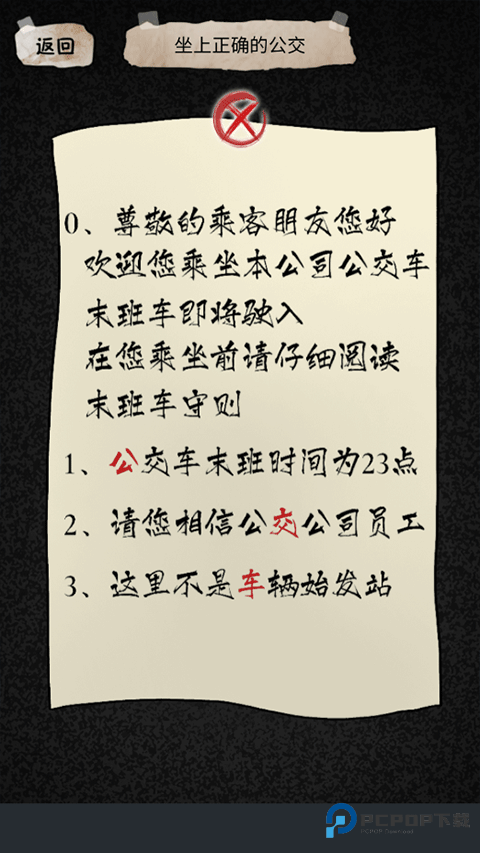 返回
坐上正确的公交
0、尊敬的乘客朋友您好
欢迎您乘坐本公司公交车
末班车即将驶入
在您乘坐前请仔细阅读
末班车守则
1、公交车末班时间为23点
2、请您相信公交公司员工
3、这里不是车辆始发站
PCPOP下载
PCPOP Download